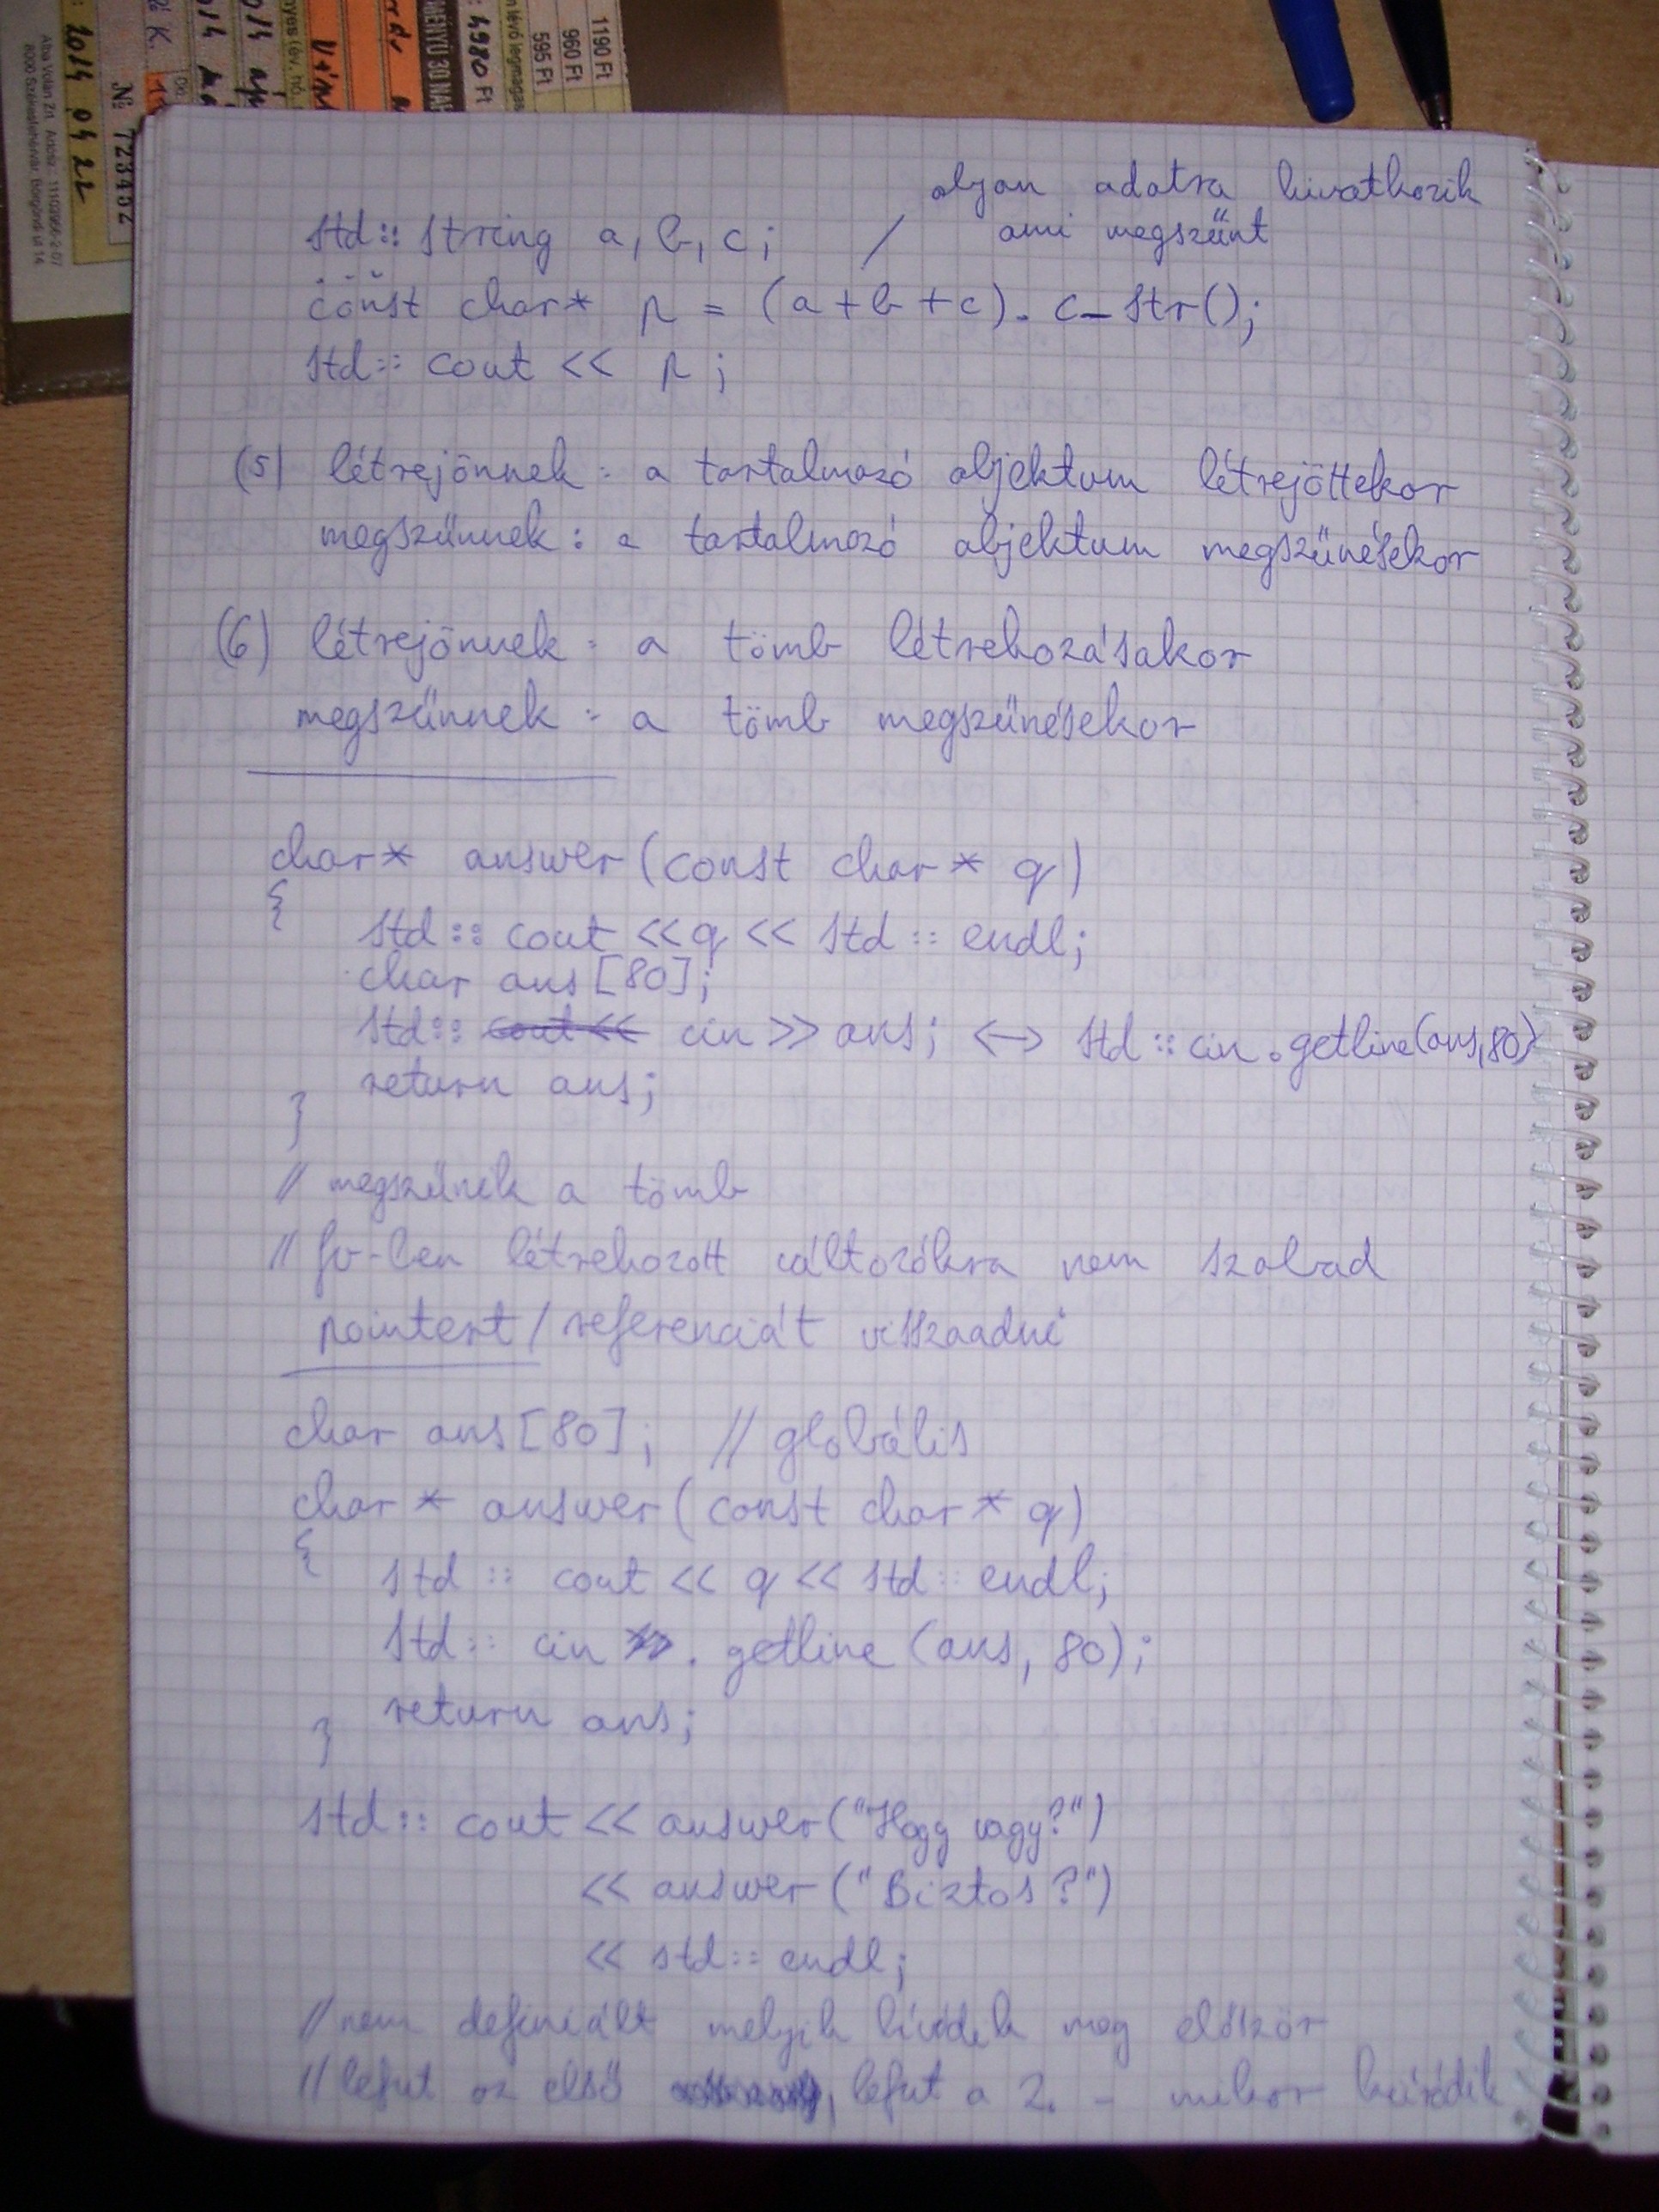 1190 Ft
960 Ft
595 Ft
4980 Ft
2014 04 22
№ 723402
olyan adatra hivatkozik
std::string a, b, c; / ami megszűnt
...
const char* p = (a+b+c).c_str();
std::cout << p;
(5) létrejönnek: a tartalmazó objektum létrejöttekor
megszűnnek: a tartalmazó objektum megszűnésekor
(6) létrejönnek: a tömb létrehozásakor
megszűnnek: a tömb megszűnésekor
char* answer (const char* q)
{
std::cout << q << std::endl;
char ans[80];
std:: cout << cin >> ans; <-> std::cin.getline(ans,80)
return ans;
}
// megszűnik a tömb
// fv-ben létrehozott változókra nem szabad
pointert / referenciát visszaadni
char ans[80]; // globális
char* answer (const char* q)
{
std::cout << q << std::endl;
std::cin >> . getline (ans, 80);
return ans;
}
std::cout << answer("Hogy vagy?")
<< answer ("Biztos?")
<< std::endl;
// nem definiált melyik hívódik meg először
// lefut az első , lefut a 2. - mikor kiíródik